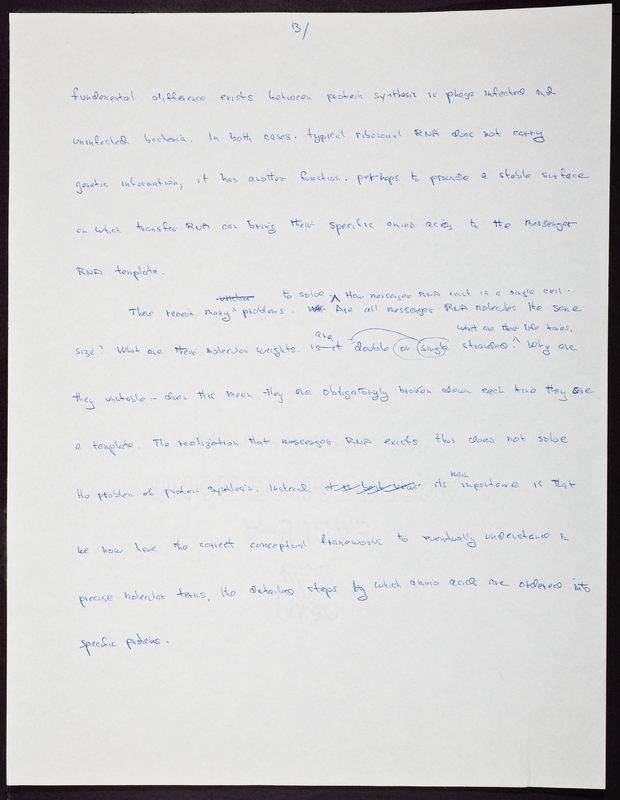 13/
fundamental difference exists between protein synthesis in phage infected and
uninfected bacteria. In both cases. typical ribosomal RNA does not carry
genetic information, it has another function. perhaps to provide a stable surface
on which transfer RNA can bring their specific amino acids to the messenger
RNA template.
to solve How messenger RNA exist in a single cell.
There remain many problems. Are all messenger RNA molecules the same
are what are their life times.
size? What are their molecular weights. is it double or single stranded? Why are
they unstable – does this mean they are obligatorily broken down each time they are
a template. The realization that messenger RNA exists thus does not solve
main
the problem of protein synthesis. Instead its importance is that
we now have the correct conceptual framework to eventually understand in
precise molecular terms, the detailed steps by which amino acids are ordered into
specific proteins.